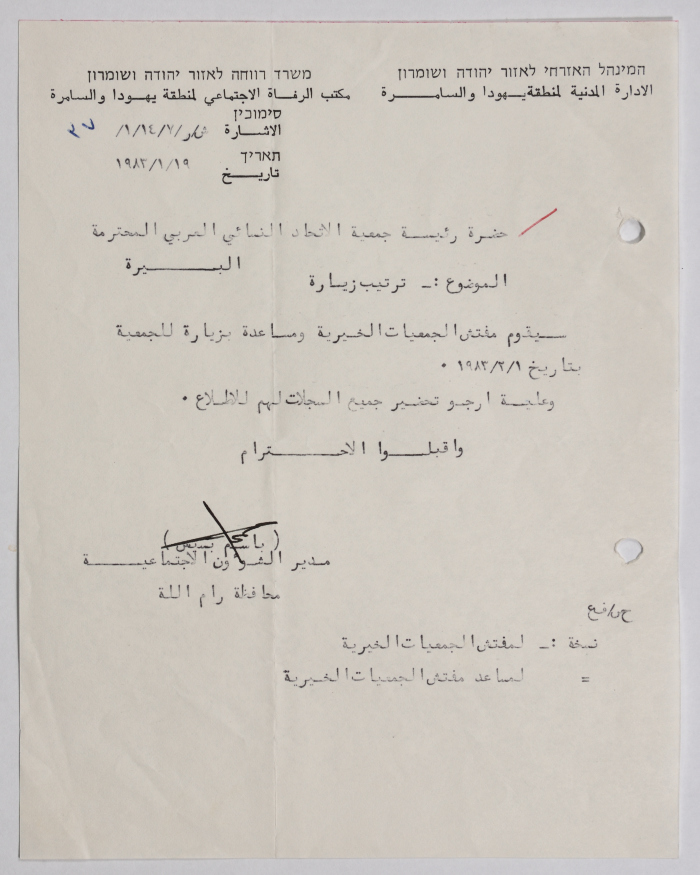 המינהל האזרחי לאזור יהודה ושומרון
الادارة المدنية لمنطقة يهودا والسامـــرة
משרד רווחה לאזור יהודה ושומרון
مكتب الرفاة الاجتماعي لمنطقة يهودا والسامرة
סימוכין
الاشـــارة /١٤/٧/١/
תאריך
تاريـــخ ١٩٨٣/١/١٩
حضرة رئيسة جمعية الاتحاد النسائي العربي المحترمة
البـــيرة
الموضوع :ـ ترتيب زيارة
ســـيقوم مفتش الجمعيات الخيرية ومساعدة بزيارة للجمعية
بتاريخ ١٩٨٣/٢/١ ٠
وعليـــة ارجـو تحضـير جميع السجلات لهم للاطلاع ٠
واقبلـــوا الاحـــترام
( باسم )
مدير الشؤون الاجتماعيـــة
محافظة رام اللة
نسخة :ـ لمفتش الجمعيات الخيرية
= لمساعد مفتش الجمعيات الخيرية